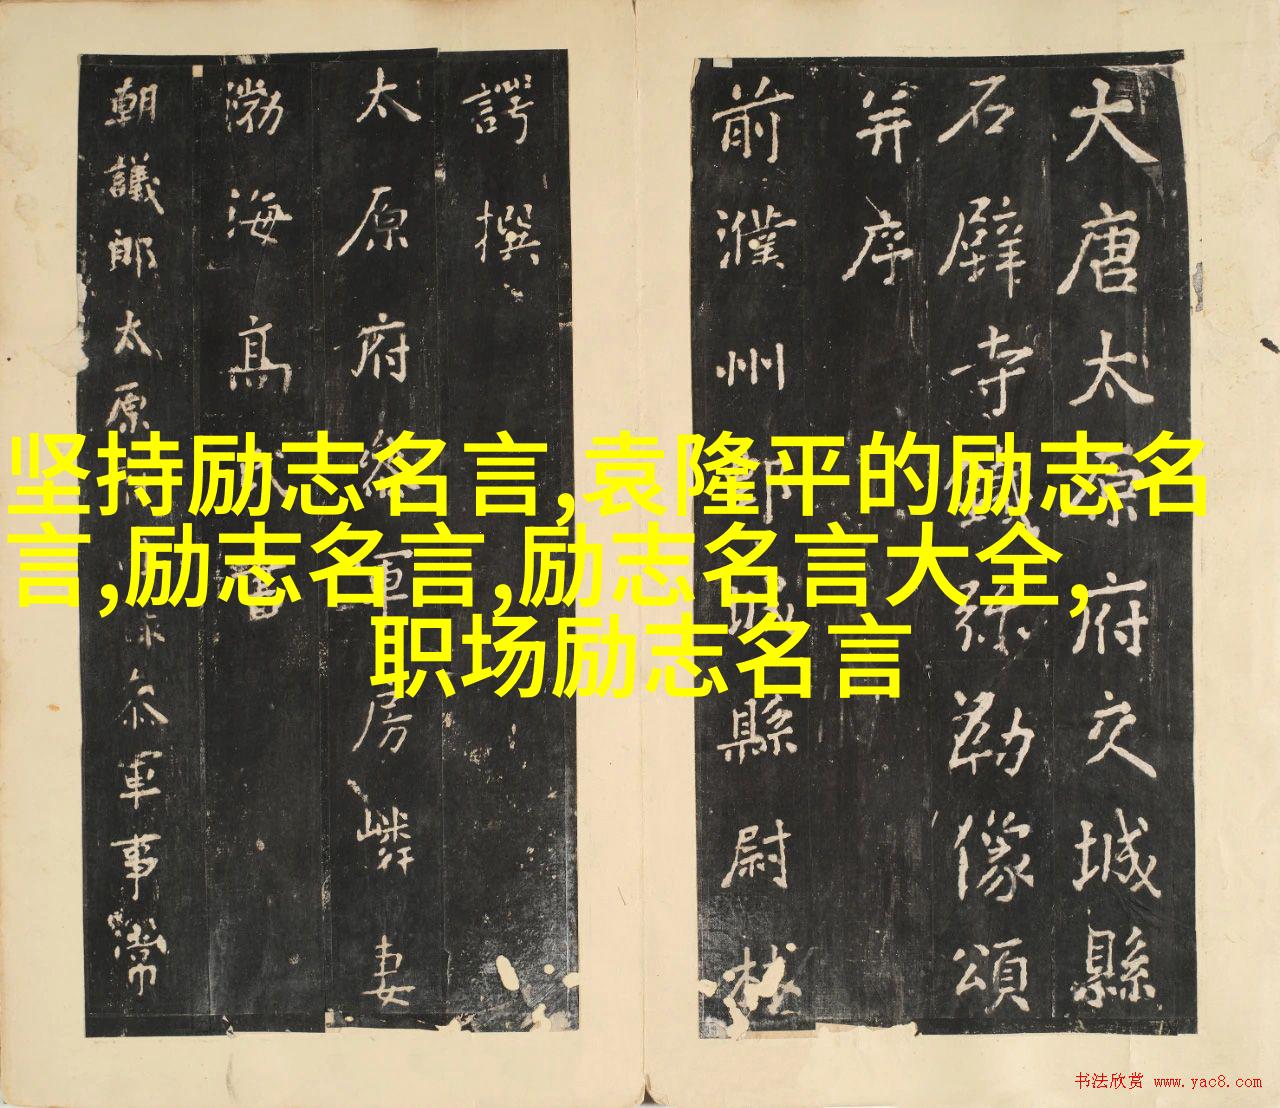 坚持励志名言,袁隆平的励志名
言,励志名言,励志名言大全,
职场励志名言
大唐太原府交城縣
石壁寺鐵弥勒像頌
并序
前濮州城縣尉林
諤撰
太原府軍房嶙妻
渤海高書
朝議郎太原叅軍事常
书法欣赏 www.yac8.com